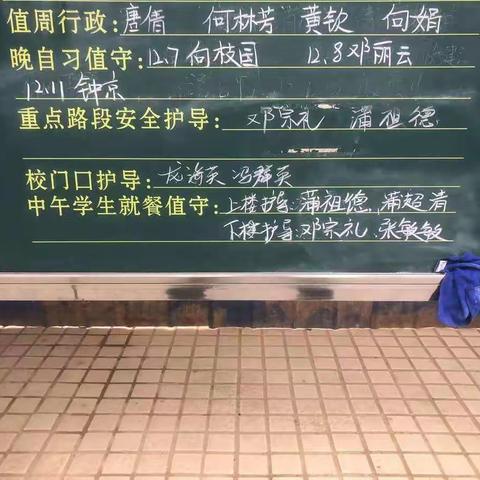 值周行政: 唐倩 何林芳 黄钦 向娟
晚自习值守: 12.7向枝国 12.8邓丽云
12.11 钟京
重点路段安全护导: 邓宗礼 蒲祖德
校门口护导: 龙海英 冯群英
中午学生就餐值守: 上楼护导:蒲祖德、蒲超清
下楼护导:邓宗礼、张敏敏